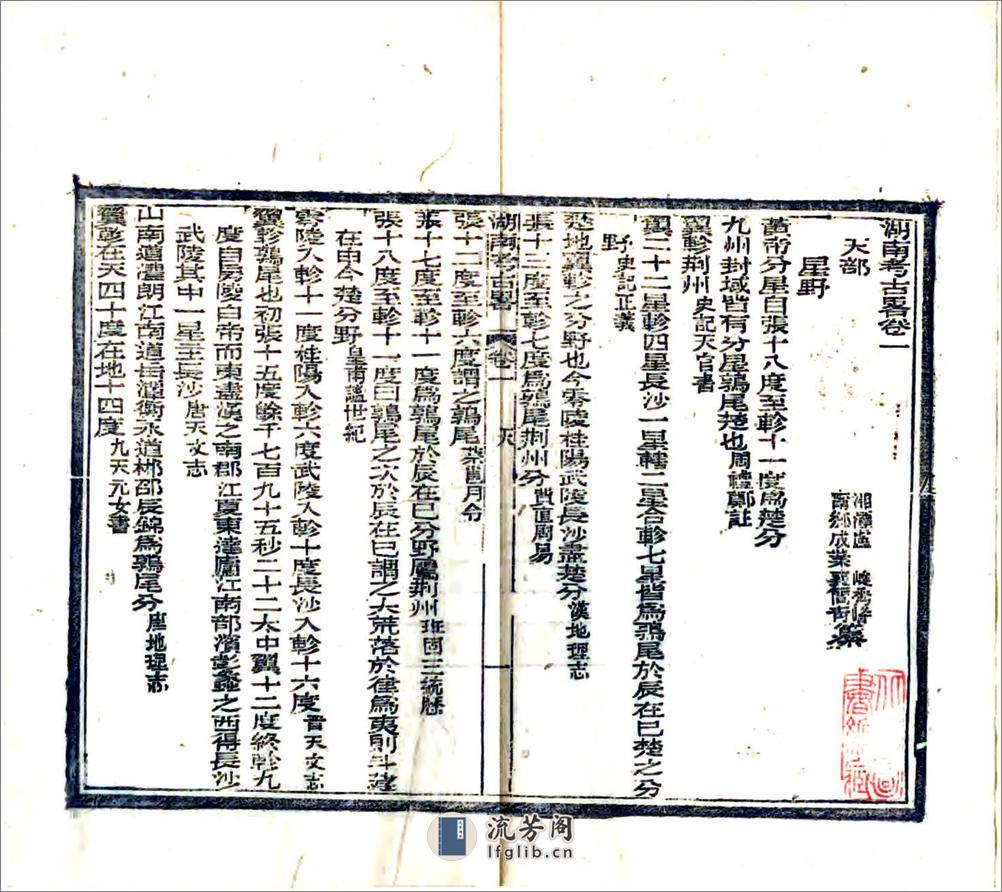 湖南考古畧卷一
天部
星野
黃帝分星自張十八度至軫十一度爲楚分
九州封域皆有分星鶉尾楚也周禮鄭註
翼軫荆州史記天官書
翼二十二星軫四星長沙一星轄二星合軫七星皆爲鶉尾於辰在巳楚之分
野史記正義
楚地翼軫之分野也今零陵桂陽武陵長沙盡楚分漢地理志
張十三度至軫七度爲鶉尾荆州分費直周易
湖南考古畧 卷一 天 一
張十二度至軫六度謂之鶉尾蔡邕月令
張十七度至軫十一度爲鶉尾於辰在巳分野屬荆州班固三統歷
張十八度至軫十一度曰鶉尾之次於辰在巳謂之大荒落於律爲夷則斗建
在申今楚分野皇甫謐世紀
零陵入軫十一度桂陽入軫六度武陵入軫十度長沙入軫十六度晉天文志
翼軫鶉尾也初張十五度餘千七百九十五秒二十二太中翼十二度終軫九
度自房陵白帝而東盡漢之南郡江夏東達廬江南部濱彭蠡之西得長沙
武陵其中一星主長沙唐天文志
山南道澧朗江南道岳潭衡永道郴邵辰錦爲鶉尾分唐地理志
翼軫在天四十度在地十四度九天元女書
流芳阁
lfglib.cn